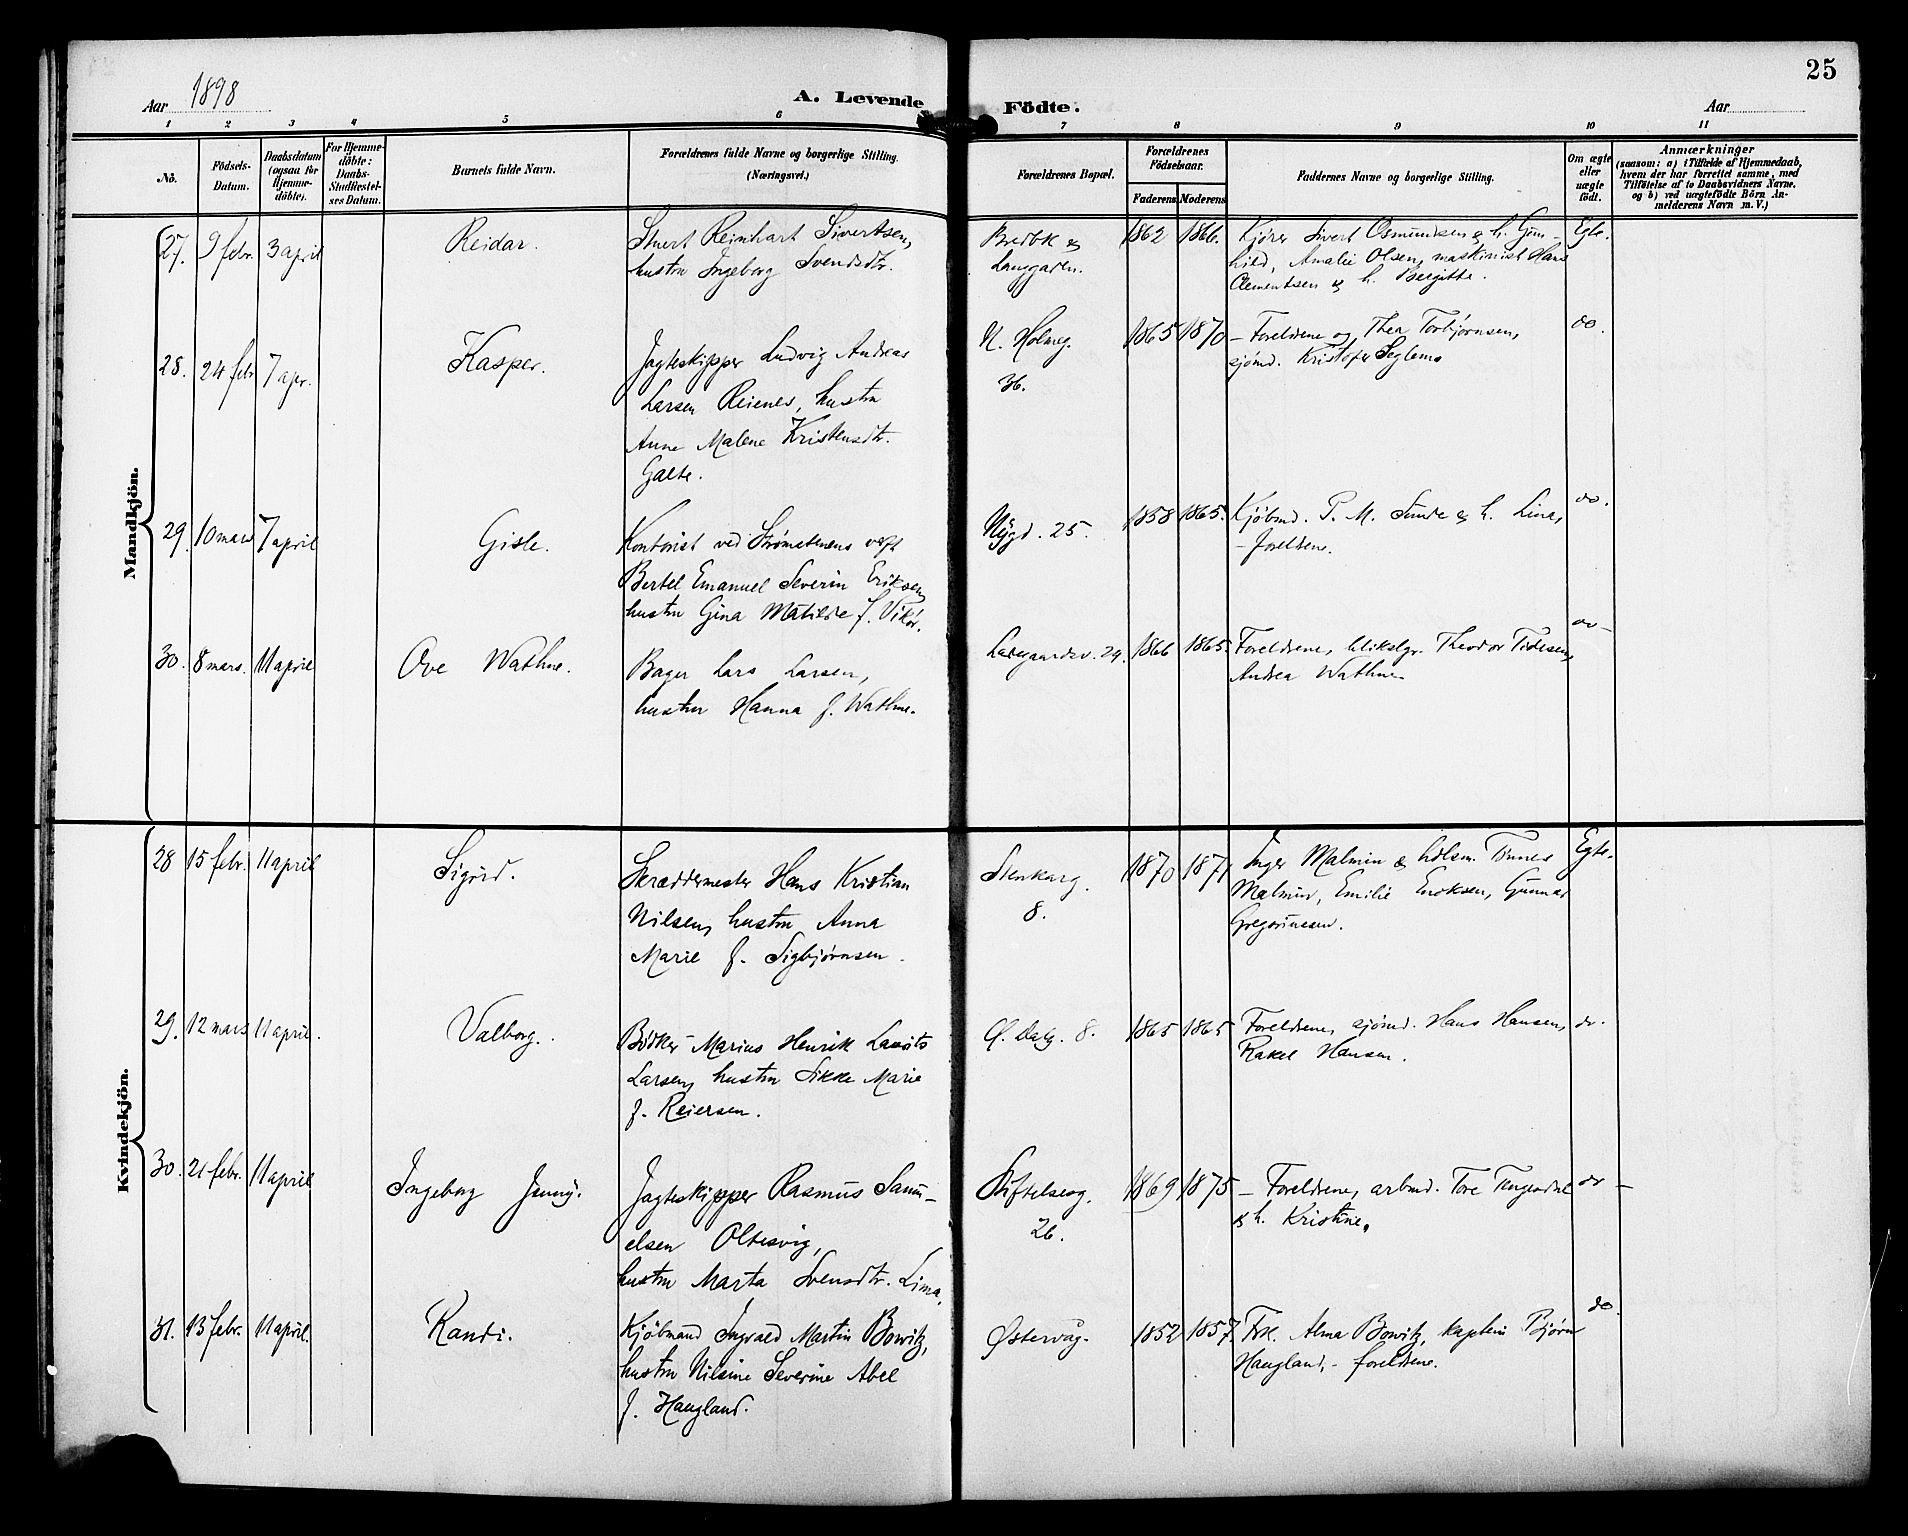 25
Aar 1898
A. Levende Födte.
Aar
1 2 3 4 5 6 7 8 9 10 11
No.
Födsels-
Datum.
Daabsdatum
(ogsaa for
Hjemme-
döbte).
For Hjemme-
döbte:
Daabs-
Stadfæstel-
ses Datum.
Barnets fulde Navn.
Forældrenes fulde Navne og borgerlige Stilling.
(Næringsvei.)
Forældrenes Bopæl.
Forældrenes
Födselsaar.
Faderens Moderens
Faddernes Navne og borgerlige Stilling.
Om ægte
eller
uægte
födt.
Anmærkninger
(saasom: a) i Tilfælde af Hjemmedaab,
hvem der har forrettet samme, med
Tilföielse af to Daabsvidners Navne,
og b) ved uægtefödte Börn An-
melderens Navn m. V.)
Mandkjön.
27. 9 febr. 3 april
Reidar.
Reinhart Sivertsen,
hustru Ingeborg Svendsdtr.
Bredbk &
Langgaden.
1862 1866.
Kjører Sivert Osmundsen & h. Gun-
hild, Amalie Olsen, maskinist Hans
Clementsen & h. Bergitte.
Egte.
28. 24 febr 7 apr.
Kasper.
Jagteskipper Ludvig Andreas
Larsen Reienes, hustru
Anne Malene Kristensdtr.
Galte.
N. Holmeg.
36.
1865 1870
– Foreldrene og Thea Torbjørnsen,
sjömd. Kristofer Seglem
do.
29. 10 mars 7 april
Gisle.
Kontorist ved Strømstenens veft
Bertel Emanuel Severin Eriksen,
hustru Gina Matilde f. Vikør.
Nygd. 25.
1858 1865.
Kjöbmd. P. M. Sunde & h. Lina,
– foreldrene.
do.
30. 8 mars. 11 april
Ove Wathne.
Bager Lars Larsen,
hustru Hanna f. Wathne.
Ladegaardsv. 29.
1866 1865.
Foreldrene, blikslgr. Theodor Tidesen,
Andrea Wathne
do –
Kvindekjön.
28 15 febr. 11 april
Sigrid.
Skræddermester Hans Kristian
Nilsen, hustru Anna
Marie f. Sigbjørnsen.
Stenkarg.
8.
1870 1871
Inger Malmin & holsm. Tönnes
Malmin, Emilie Eriksen, Gunnar
Gregoriussen.
Egte.
29. 12 mars 11 april.
Valborg.
Bödker Marius Henrik Lauritz
Larsen, hustru Sikke Marie
f. Reiersen.
Ø. Dalg. 8.
1865 1865
Foreldrene, sjömd. Hans Hansen,
Rakel Hansen.
do.
30. 21 febr. 11 april
Ingeborg Jenny.
Jagteskipper Rasmus Samu-
elsen Oltesvig,
hustru Marta Svensdtr. Lima,
Stiftelsesg.
26.
1869 1875
– Foreldrene, arbmd. Tore Tengesdal
& h. Kristine.
do –
31. 13 febr. 11 april.
Randi.
Kjöbmand Ingvald Martin Bowitz,
hustru Nilsine Severine Abel
f. Haugland.
Østervåg.
1852 1857.
Frk. Alma Bowitz, kaptein Bjørn
Haugland, – foreldrene.
do.